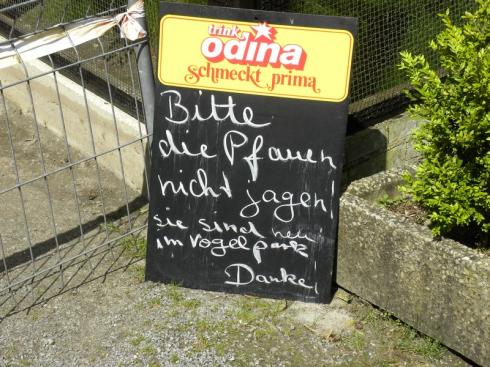 trink
odina
schmeckt prima
Bitte
die Pfauen
nicht jagen!
sie sind neu
im Vogelpark
Danke!